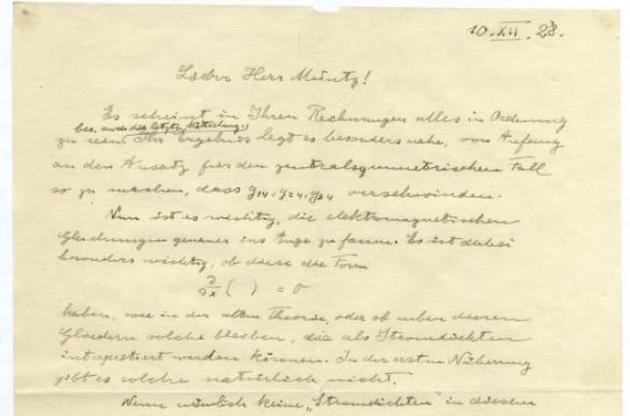 10.XII.28.
Lieber Herr Müntz!
Es scheint in Ihren Rechnungen alles in Ordnung
bes. auch der letzte Mitteilung.
zu sein. Ihr Ergebnis legt es besonders nahe, von Anfang
an den Ansatz für den zentralsymmetrischen Fall
so zu machen, dass g14, g24, g34 verschwinden.
Nun ist es wichtig, die elektromagnetischen
Gleichungen genauer ins Auge zu fassen. Es ist dabei
besonders wichtig, ob diese die Form
∂/∂x ( ) = 0
haben, wie in der alten Theorie, oder ob neben diesen
Gliedern solche bleiben, die als Stromdichten
interpretiert werden können. In der ersten Näherung
gibt es solche natürlich nicht.
Wenn nämlich keine „Stromdichten" in diesen